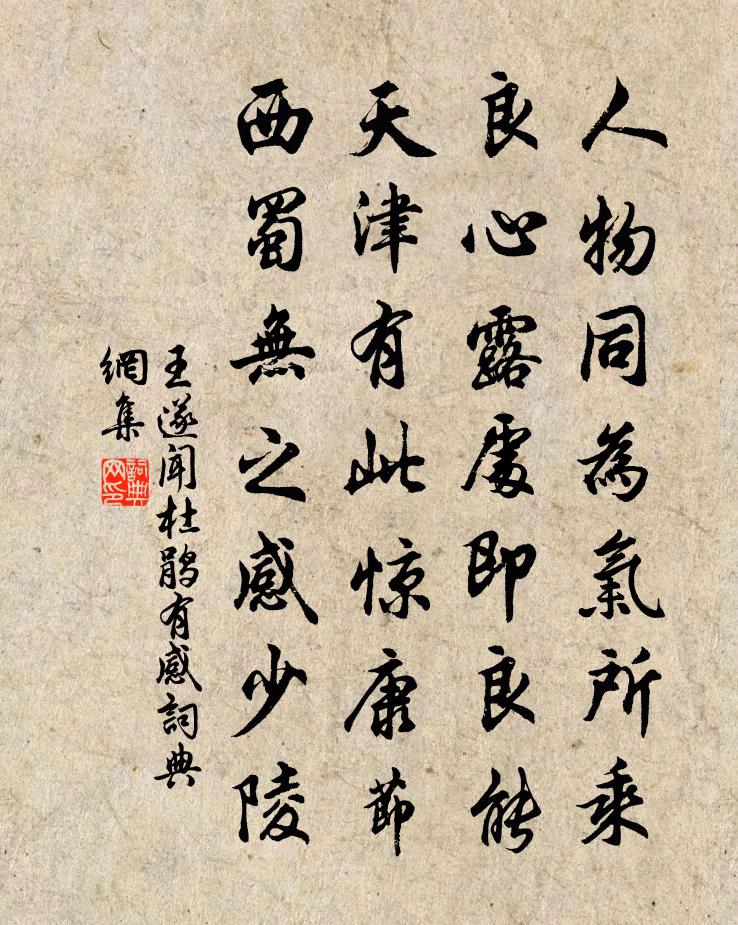 人物同為氣所乘
良心露處即良能
天津有此惊康節
西蜀無之感少陵
王遂闻杜鹃有感詞典
網集
詞典
网印